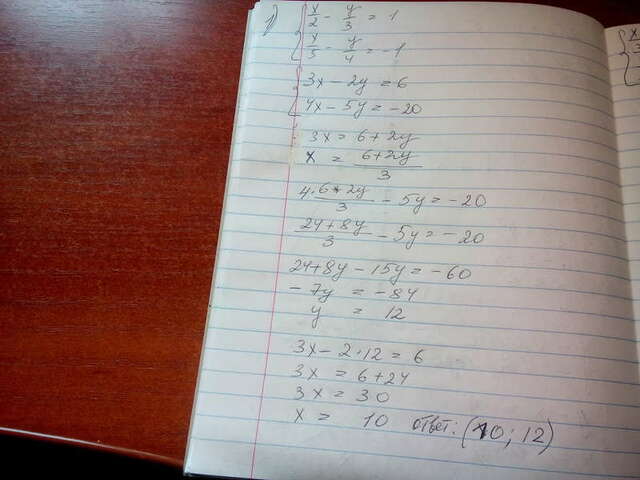 1) { x/2 - y/3 = 1
x/5 - y/4 = -1
{ 3x - 2y = 6
4x - 5y = -20
3x = 6 + 2y
x = (6 + 2y)/3
4 · (6 + 2y)/3 - 5y = -20
(24 + 8y)/3 - 5y = -20
24 + 8y - 15y = -60
-7y = -84
y = 12
3x - 2 · 12 = 6
3x = 6 + 24
3x = 30
x = 10 ответ: (10; 12)